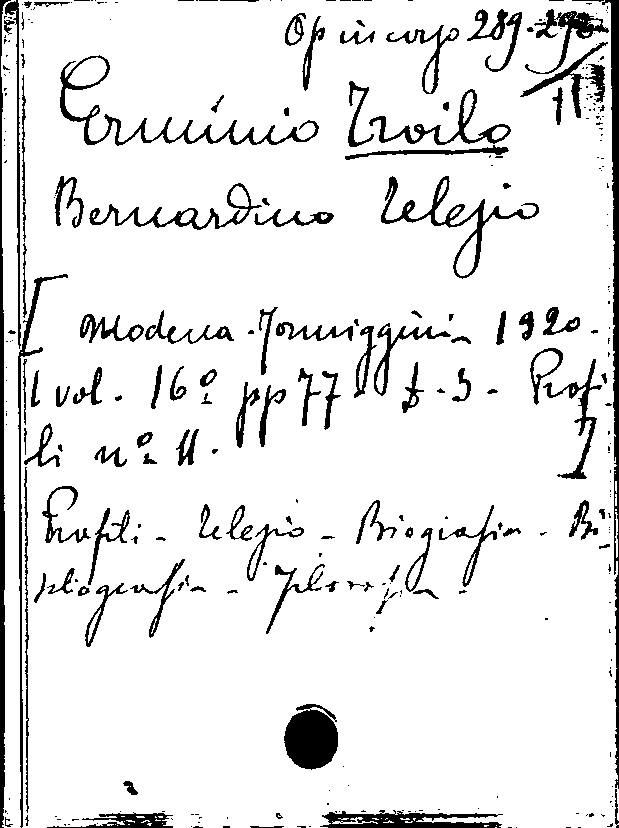 Op in corso 289-290
II
Erminio Troilo
Bernardino Telesio
[ Modena - Formiggini - 1920 -
1 vol. 16º pp 77 - £ - 3 - Profi
li nº 11. ]
Profili - Telesio - Biografia - Bi
bliografia - Filosofia -